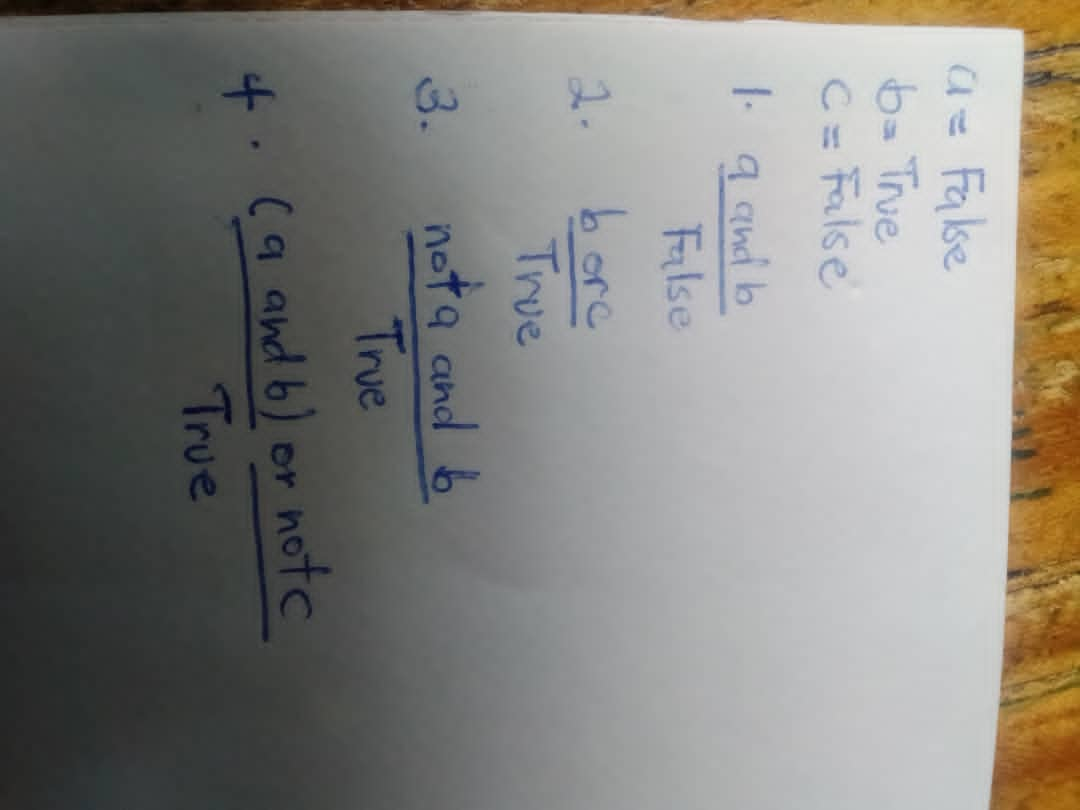 a = False
b = True
c = False
1. a and b
False
2. b or c
True
3. not a and b
True
4. (a and b) or not c
True